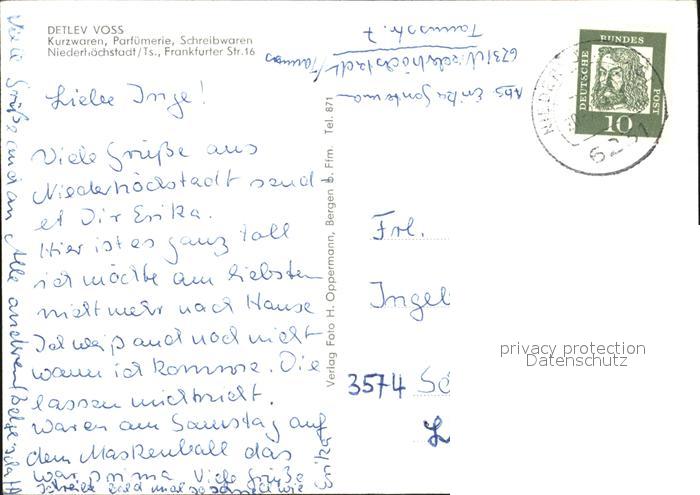 DETLEV VOSS
Kurzwaren, Parfümerie, Schreibwaren
Niederhöchstadt/Ts., Frankfurter Str. 16
Liebe Inge!
Viele Grüße aus
Niederhöchstadt send-
et Dir Erika.
Hier ist es ganz toll
ich möchte am liebsten
nicht mehr nach Hause
Ich weiß auch noch nicht
wann ich komme. Die
lassen mich nicht.
Waren am Samstag auf
dem Maskenball das
war prima. Viele Grüße
Schreibe bald mal so
Erika
Viele Grüße auch an Alle anderen
Abs. Erika
6231 Niederhöchstadt/Taunus
Taunusstr. 7
Verlag Foto H. Oppermann, Bergen b. Ffm. Tel. 871
DEUTSCHE BUNDES POST
10
NIEDER
6231
Frl.
Ingel
3574
privacy protection
Datenschutz